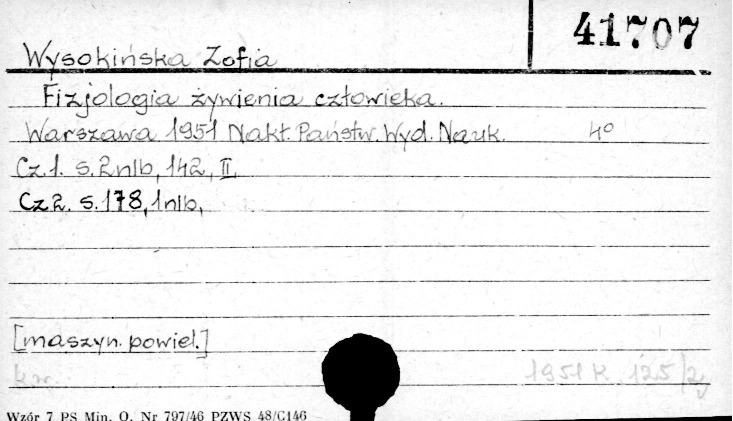 41707
Wysokińska Zofia
Fizjologia żywienia człowieka.
Warszawa 1951 Nakł. Państw. Wyd. Nauk. 4°
Cz.1. s. 2nlb, 142, II.
Cz 2. s. 178, 1nlb,
[maszyn. powiel.]
1951 K 125/2j
Wzór 7 PS Min. O. Nr 797/46 PZWS 48/C146